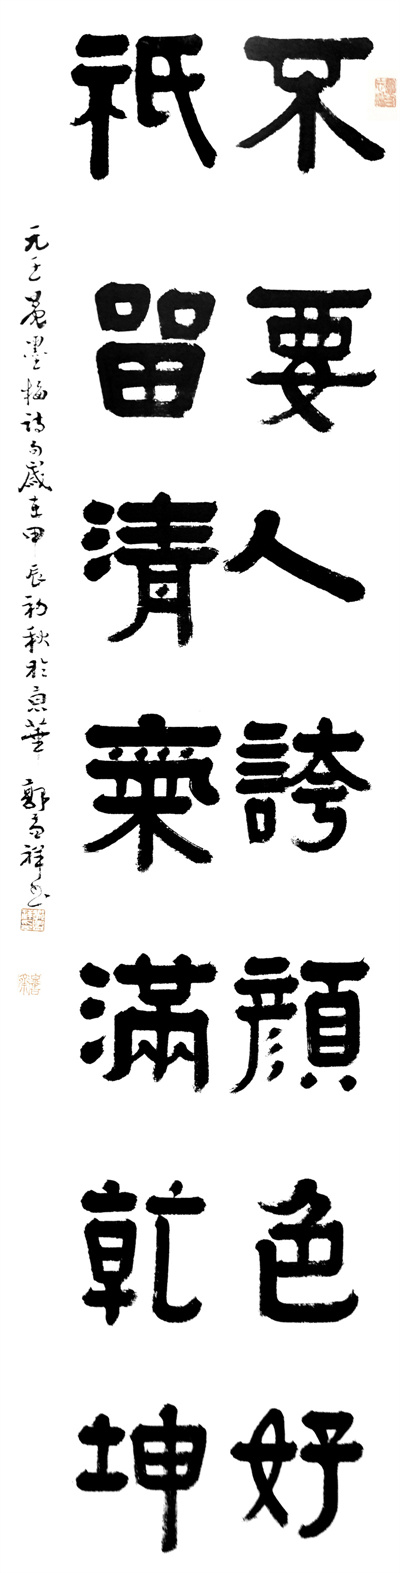 不要人誇顔色好
祇留清氣滿乾坤
元王冕墨梅詩句歲在甲辰初秋於京華郭